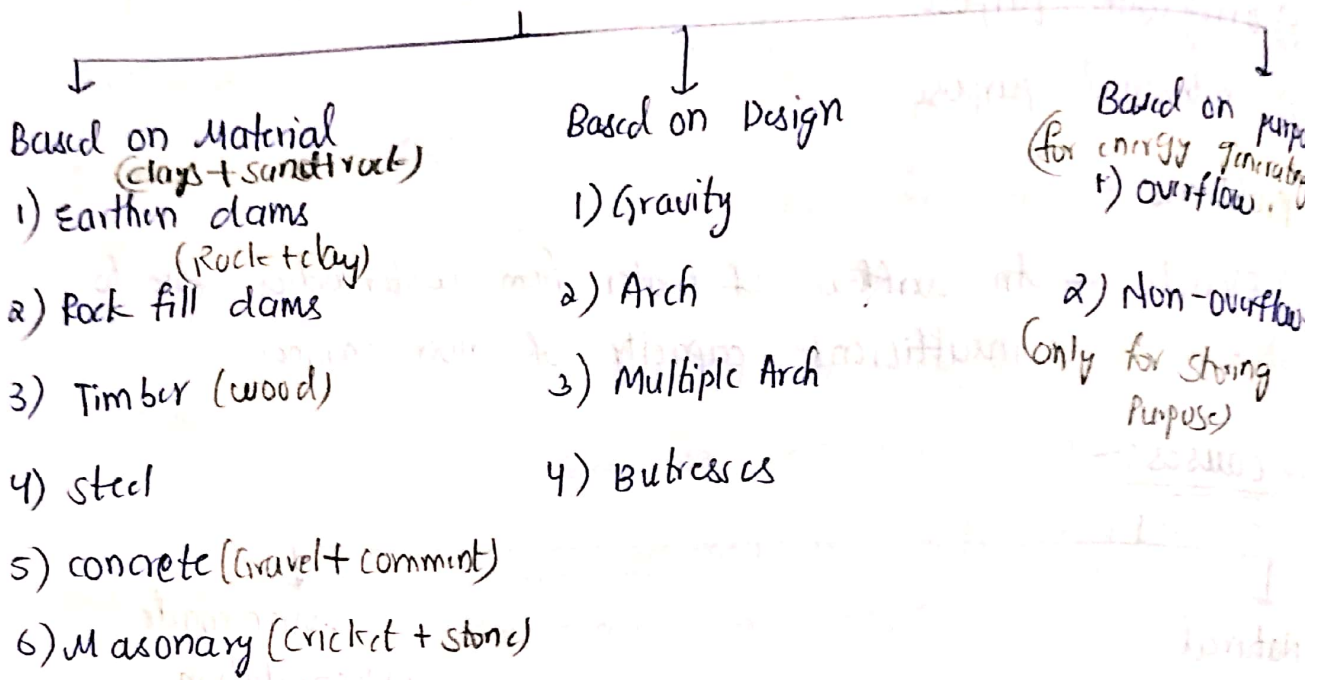 Based on Material
(Clays + sand + rock)
1) Earthen dams
(Rock + clay)
2) Rock fill dams
3) Timber (wood)
4) Steel
5) concrete (Gravel + comment)
6) Masonary (Cricket + stone)
Based on Design
1) Gravity
2) Arch
3) Multiple Arch
4) Butresses
Based on purpo
(for energy generatin
1) overflow.
2) Non-overflow
(only for storing
Purpose)